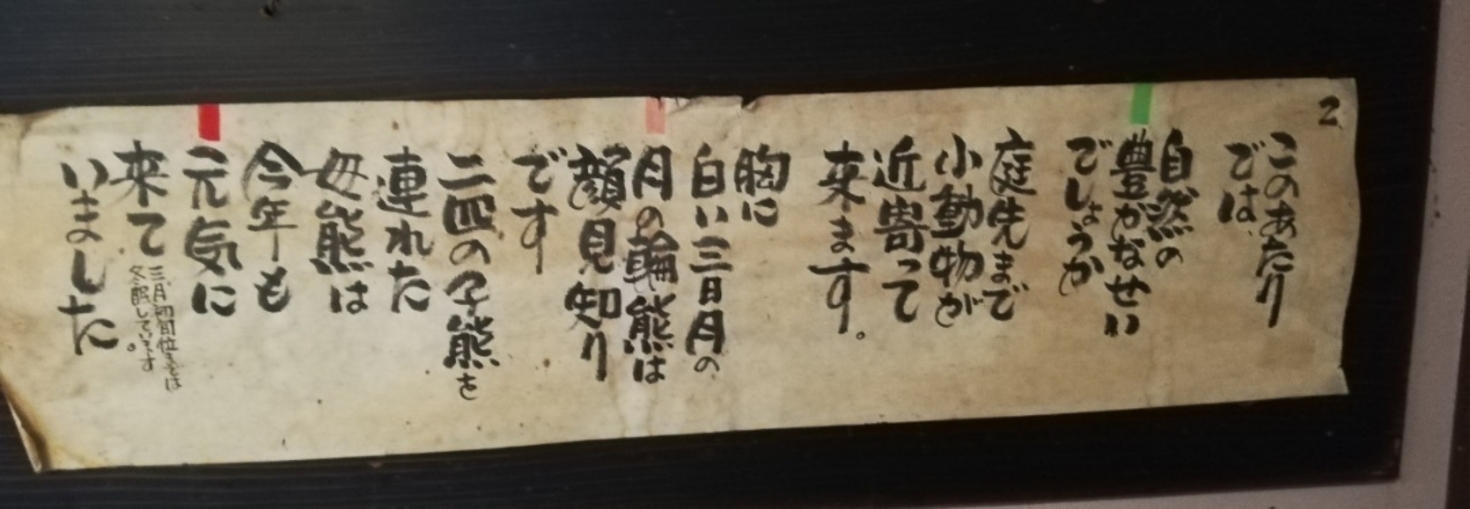 2
このあたり
では、
自然の
豊かなせい
でしょうか
庭先まで
小動物が
近寄って
来ます。
胸に
白い三日月の
月の輪熊は
顔見知り
です
二匹の子熊を
連れた
母熊は
今年も
元気に
来て
三月初旬位までは
冬眠しています
いました。